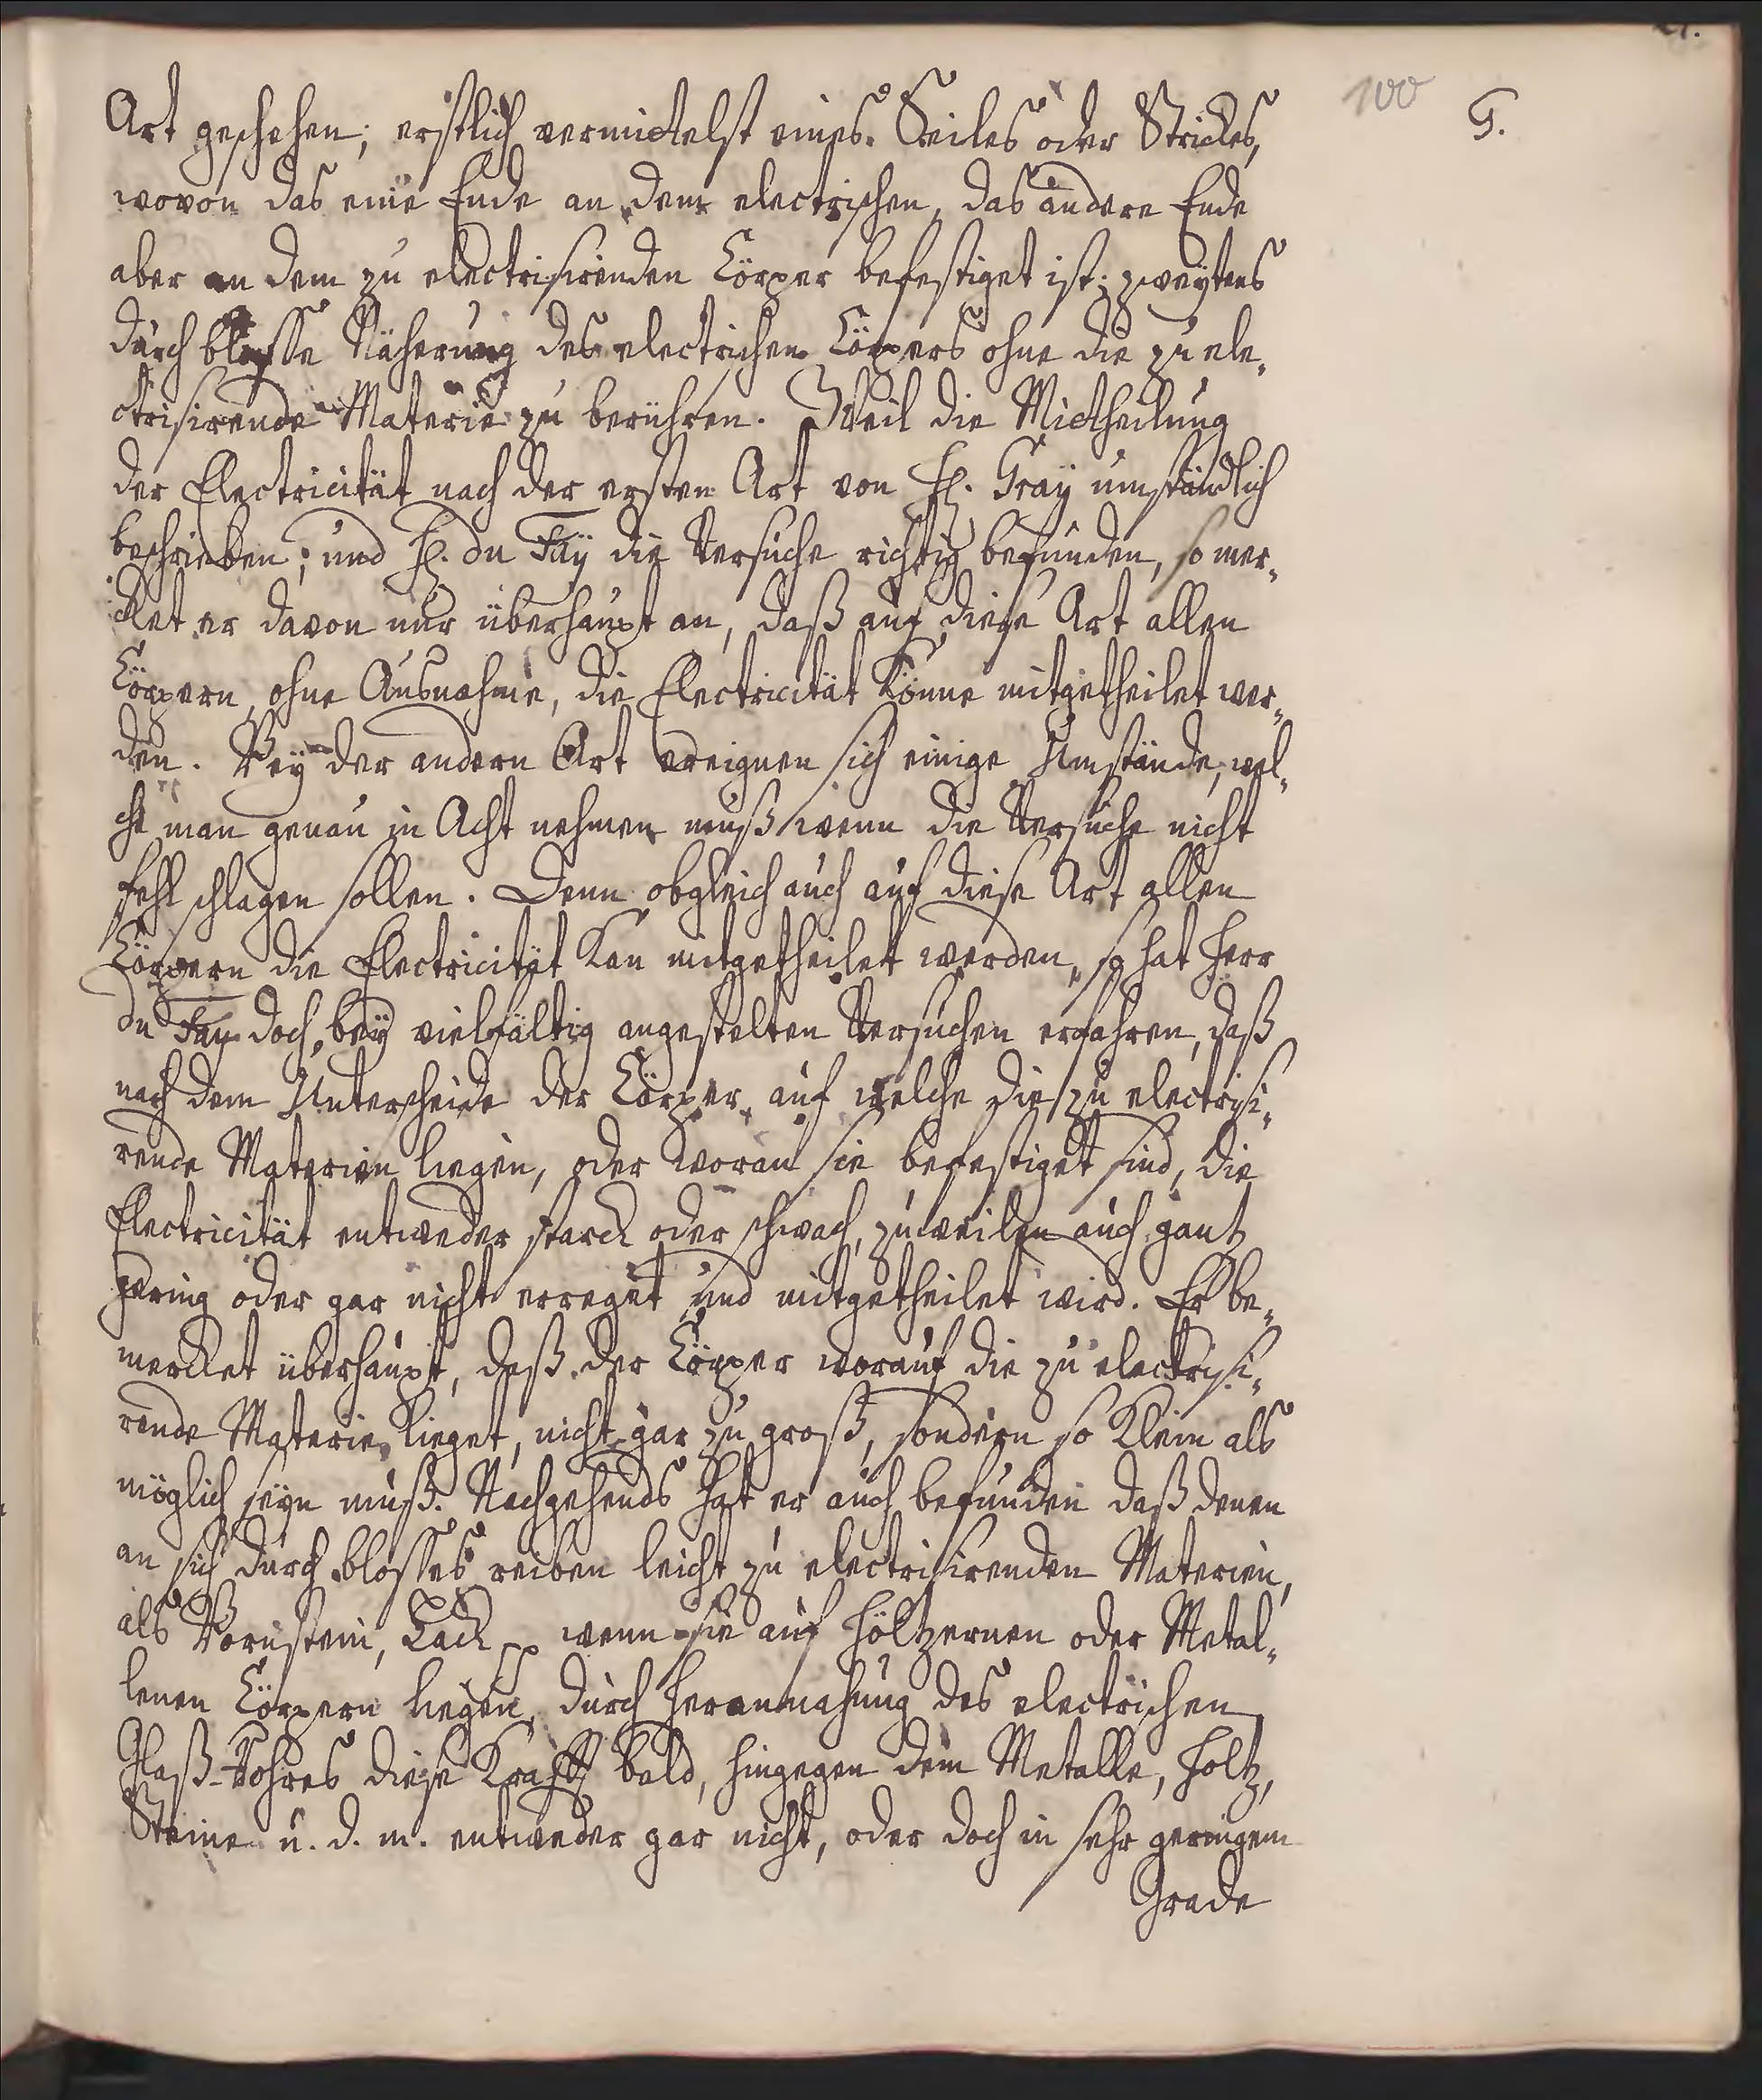 100
G.
Art geschehen; erstlich vermittelst eines Seiles oder Strickes,
wovon das eine Ende an dem electrischen, das andere Ende
aber an dem zu electrisirenden Cörper befestiget ist; zweytens
durch blosse Näherung des electrischen Cörpers ohne die zu ele-
ctrisirende Materie zu berühren. Weil die Mittheilung
der Electricität nach der ersten Art von H. Gray umständlich
beschrieben; und H. du Fay die Versuche richtig befunden, so mer-
cket er davon nur überhaupt an, daß auf diese Art allen
Cörpern, ohne Ausnahme, die Electricität könne mitgetheilet wer-
den. Bey der andern Art ereignen sich einige Umstände, wel-
che man genau in Acht nehmen muß wenn die Versuche nicht
fehl schlagen sollen. Denn obgleich auch auf diese Art allen
Cörpern die Electricität kan mitgetheilet werden, so hat Herr
du Fay doch, bey vielfältig angestelten Versuchen erfahren, daß
nach dem Unterscheide der Cörper, auf welche die zu electrisi-
rende Materien liegen, oder woran sie befestiget sind, die
Electricität entweder starck oder schwach, zuweilen auch gantz
gering oder gar nicht erreget und mitgetheilet wird. Er be-
mercket überhaupt, daß der Cörper worauf die zu electrisi-
rende Materie lieget, nicht gar zu groß, sondern so klein als
möglich seyn muß. Nachgehends hat er auch befunden daß denen
an sich durch blosses reiben leicht zu electrisirenden Materien,
als Bornstein, Lack pp wenn sie auf höltzernen oder Metal-
lenen Cörpern liegen, durch herannahung des electrischen
Glaß-Rohres diese Krafft bald, hingegen dem Metalle, Holtz,
Steine u. d. m. entweder gar nicht, oder doch in sehr geringem
Grade